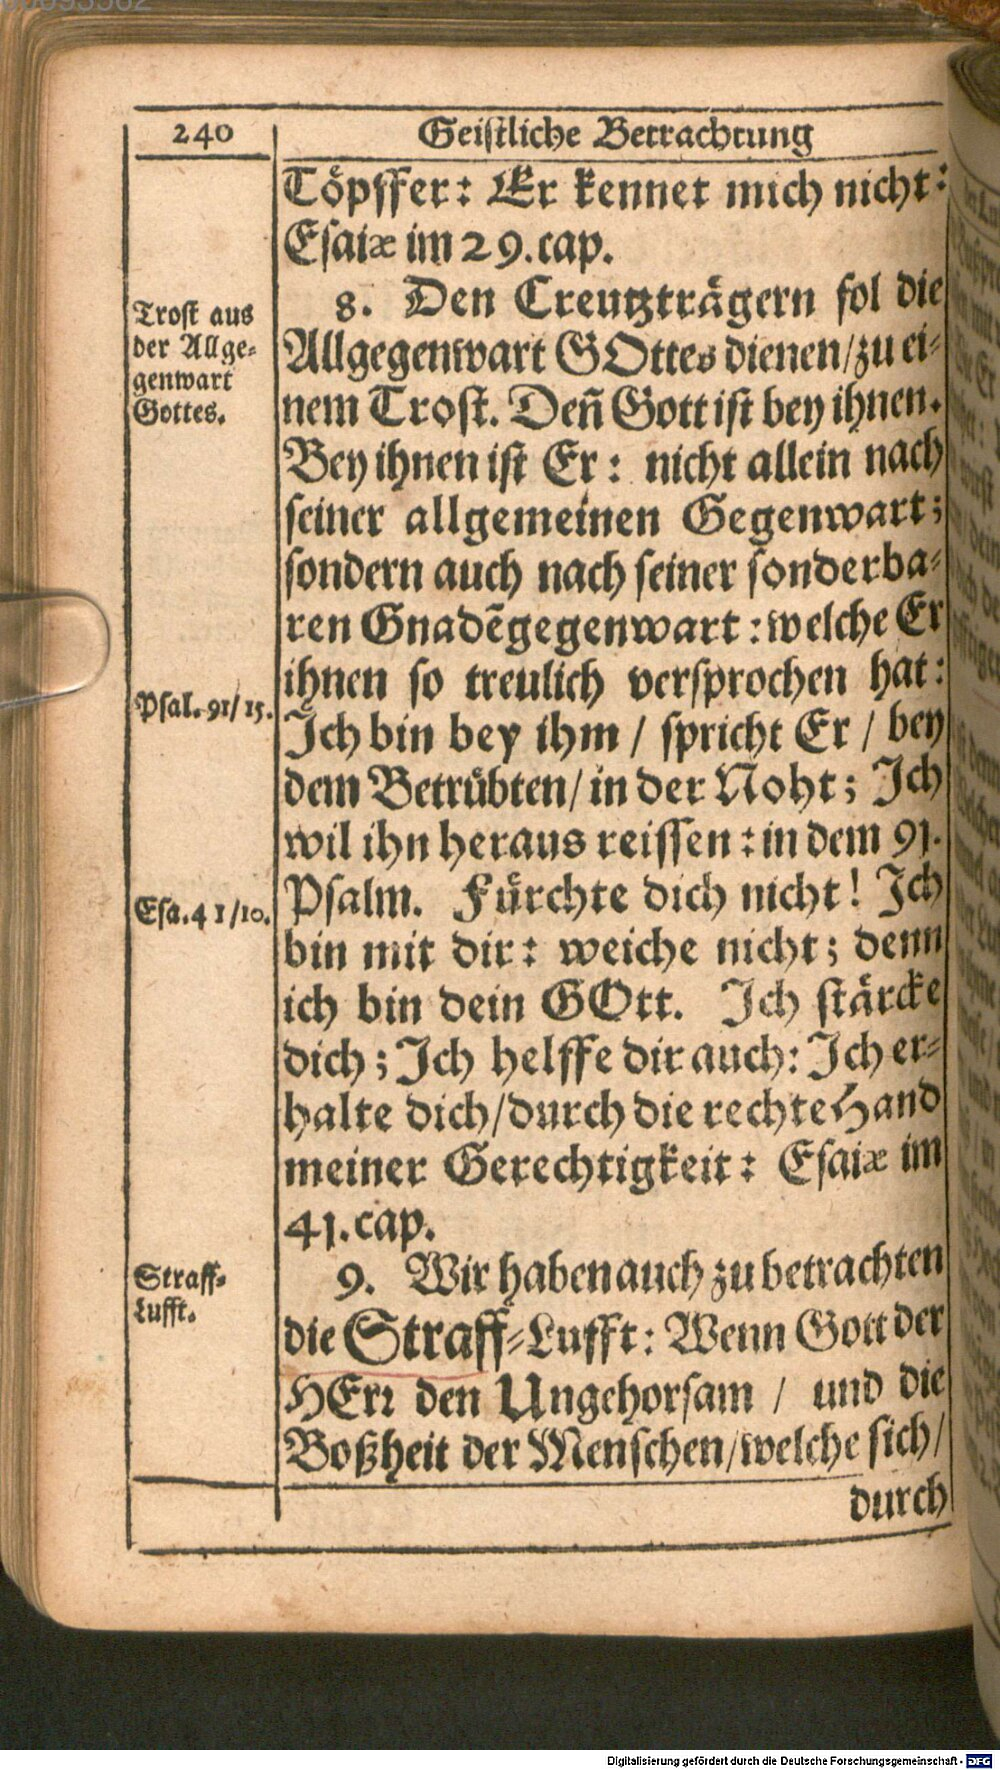 240
Geistliche Betrachtung
Töpffer: Er kennet mich nicht:
Esaiæ im 29. cap.
Trost aus
der Allge-
genwart
Gottes.
8. Den Creutzträgern sol die
Allgegenwart GOttes dienen/zu ei-
nem Trost. Deñ Gott ist bey ihnen.
Bey ihnen ist Er: nicht allein nach
seiner allgemeinen Gegenwart;
sondern auch nach seiner sonderba-
ren Gnadẽgegenwart: welche Er
ihnen so treulich versprochen hat:
Psal. 91/15.
Ich bin bey ihm / spricht Er / bey
dem Betrübten/ in der Noht; Ich
wil ihn heraus reissen: in dem 91.
Psalm. Fürchte dich nicht! Ich
Esa. 41/10.
bin mit dir: weiche nicht; denn
ich bin dein GOtt. Ich stärcke
dich; Ich helffe dir auch: Ich er-
halte dich/durch die rechte Hand
meiner Gerechtigkeit: Esaiæ im
41. cap.
Straff-
Lufft.
9. Wir haben auch zu betrachten
die Straff-Lufft: Wenn Gott der
HErr den Ungehorsam / und die
Boßheit der Menschen/welche sich/
durch
Digitalisierung gefördert durch die Deutsche Forschungsgemeinschaft - DFG